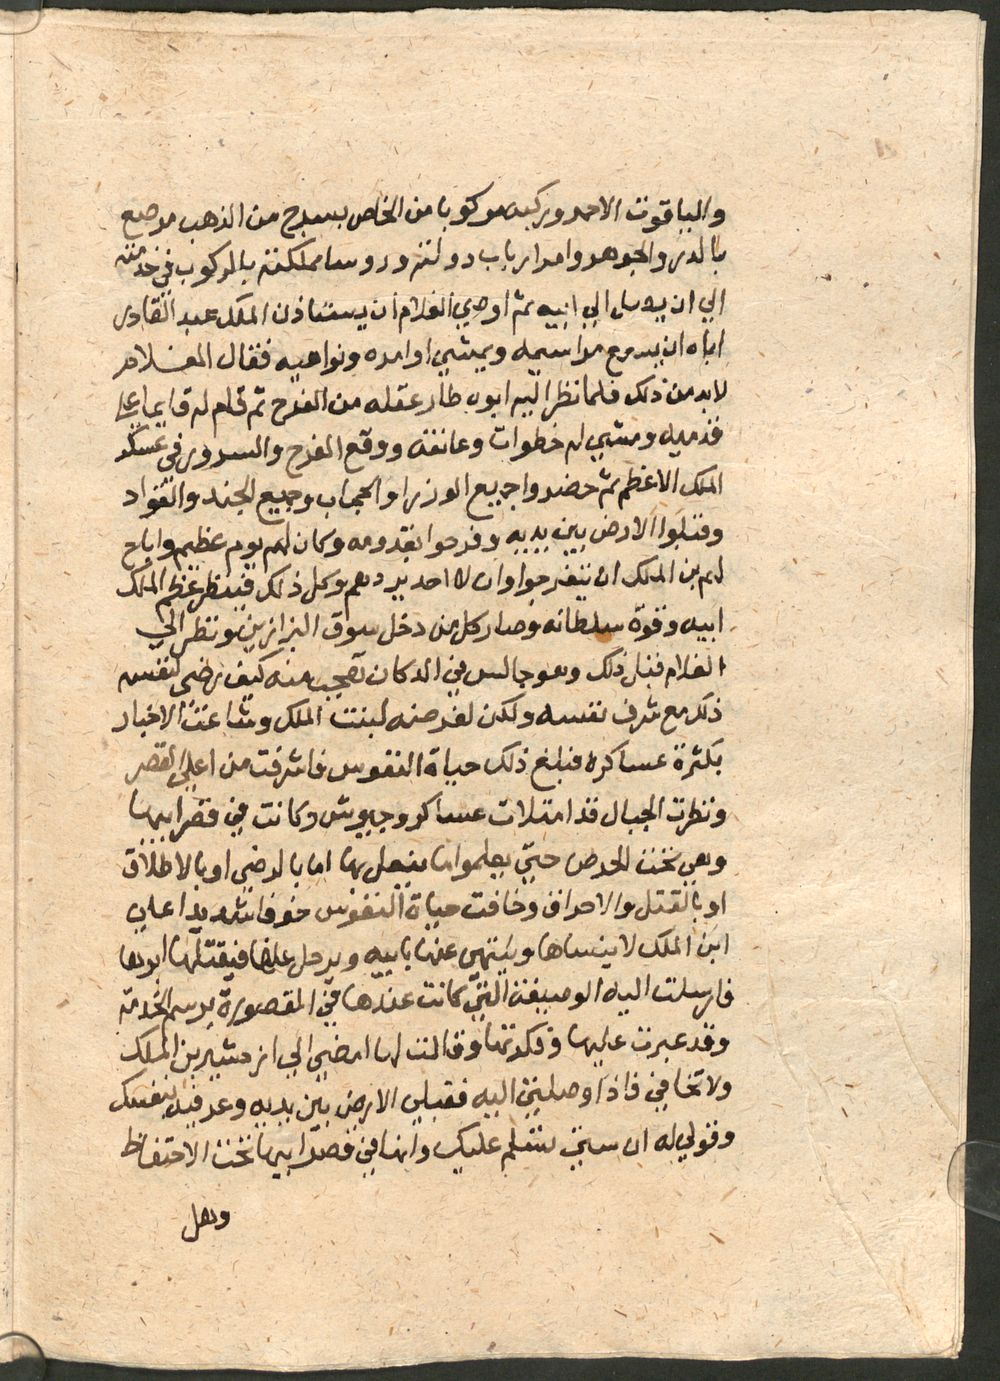 والياقوت الاحمر ويركبه مركوبا من الخاص بسرج من الذهب مرصع
بالدر والجوهر وامر ارباب دولته وروسا مملكته بالركوب في خدمته
الي ان يصل الي ابيه ثم اوصي الغلام ان يستاذن الملك عبد القادر
اباه ان يسمع مراسيمه ويمشي اوامره ونواهيه فقال الغلام
لابد من ذلك فلما نظر اليه ابوه طار عقله من الفرح ثم قام له قايما علي
قدميه ومشي له خطوات وعانقه ووقع الفرح والسرور في عسكر
الملك الاعظم ثم حضروا جميع الوزرا والحجاب وجميع الجند والقواد
وقبلوا الارض بين يديه وفرحوا بقدومه وكان لهم يوم عظيم واباح
لهم بن الملك ان يتفرجوا وان لا احد يردهم وكل ذلك لينظر عظم الملك
ابيه وقوة سلطانه وصار كل من دخل سوق البزازين ونظر الي
الغلام قبل ذلك وهو جالس في الدكان تعجب منه كيف رضي لنفسه
ذلك مع شرف نفسه ولكن لغرضه لبنت الملك وشاعت الاخبار
بكثرة عساكره فبلغ ذلك حياة النفوس فاشرفت من اعلي القصر
ونظرت الجبال قد امتلات عساكر وجيوش وكانت في قصر ابيها
وهي تحت الحرص حتي يعلموا ما يفعل بها اما بالرضي او بالاطلاق
او بالقتل والاحراق وخافت حياة النفوس خوفا شديدا علي
ابن الملك لاينساها ويلتهي عنها بابيه ويرحل عنها فيقتلها ابوها
فارسلت اليه الوصيفة التي كانت عندها في المقصورة برسم الخدمة
وقد عبرت عليها وفكرتها وقالت لها امضي الي ازدشير بن الملك
ولا تخافي فاذا وصلتي اليه فقبلي الارض بين يديه وعرفيه بنفسك
وقولي له ان ستي تسلم عليك وانها في قصر ابيها تحت الاحتفاظ
وهل